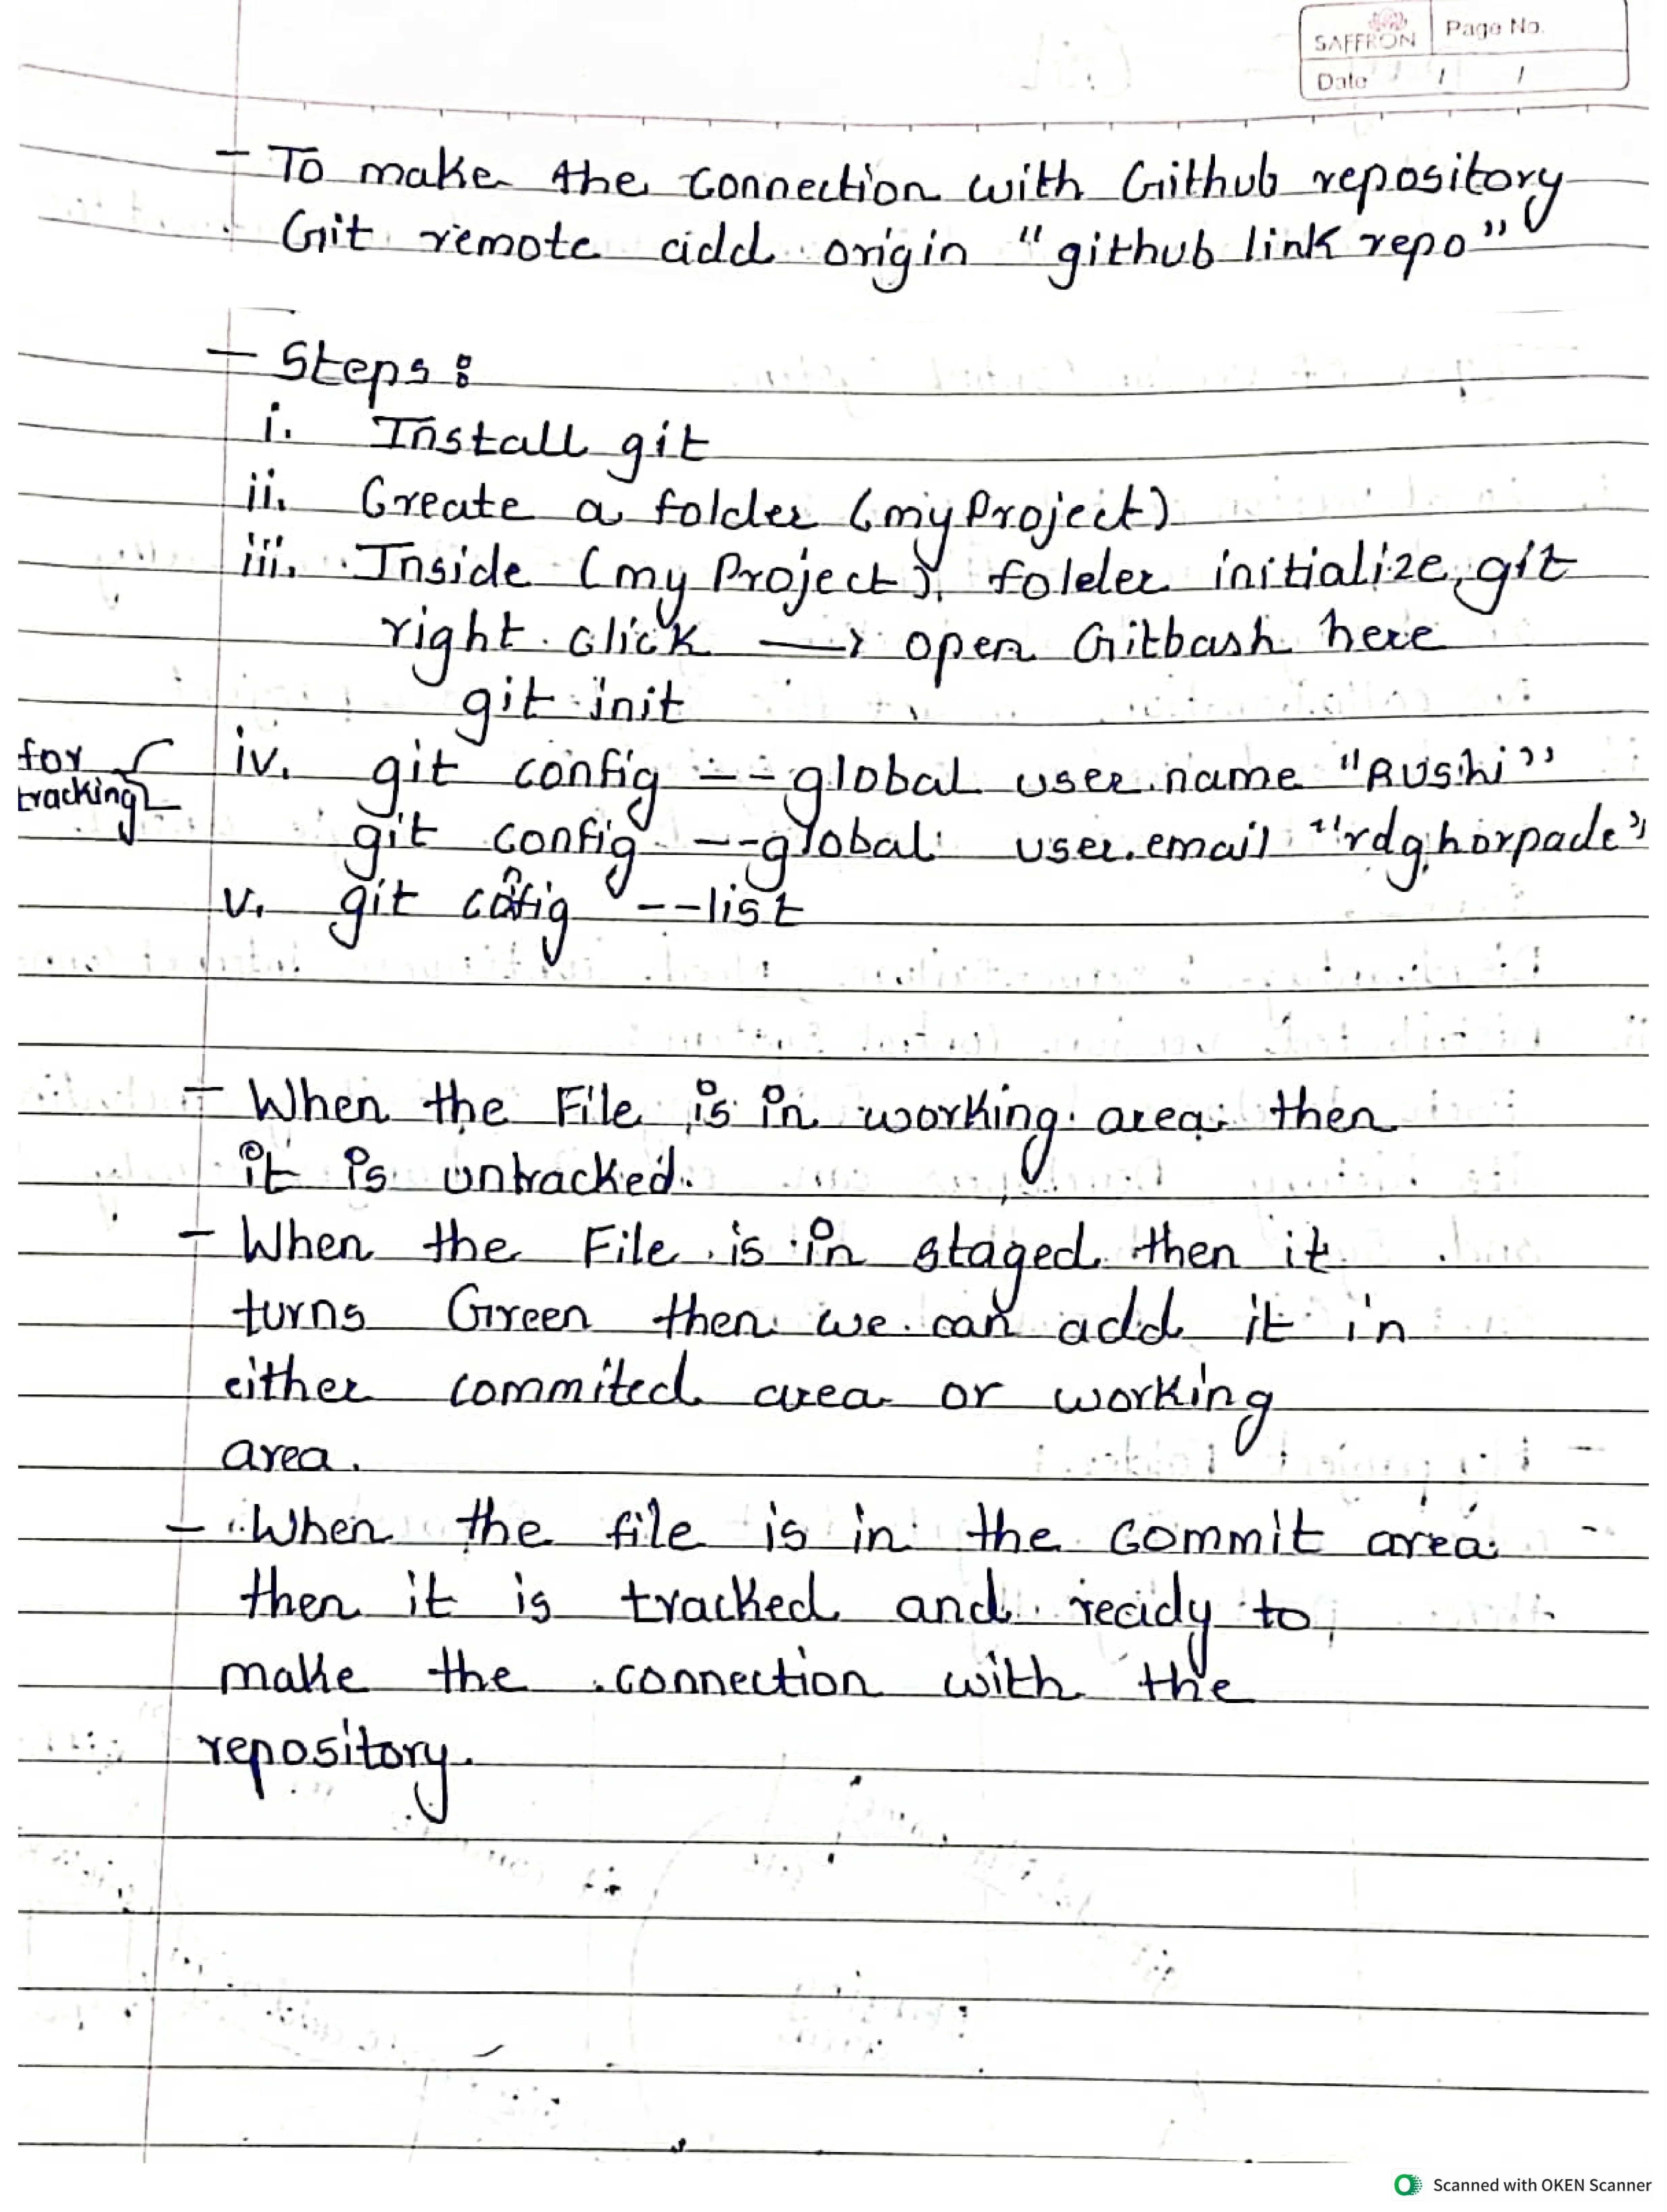 SAFFRON
Page No.
Date / /
- To make the connection with Github repository
Git remote add origin "github link repo"
- Steps:
i. Install git
ii. Create a folder (myProject)
iii. Inside (myProject) folder initialize git
right click → open Gitbash here
git init
for tracking { iv. git config --global user.name "Rushi"
git config --global user.email "rdghorpade"
v. git config --list
- When the File is in working area then
it is untracked.
- When the File is in staged then it
turns Green then we can add it in
either commited area or working
area.
- When the file is in the commit area
then it is tracked and ready to
make the connection with the
repository.
Scanned with OKEN Scanner